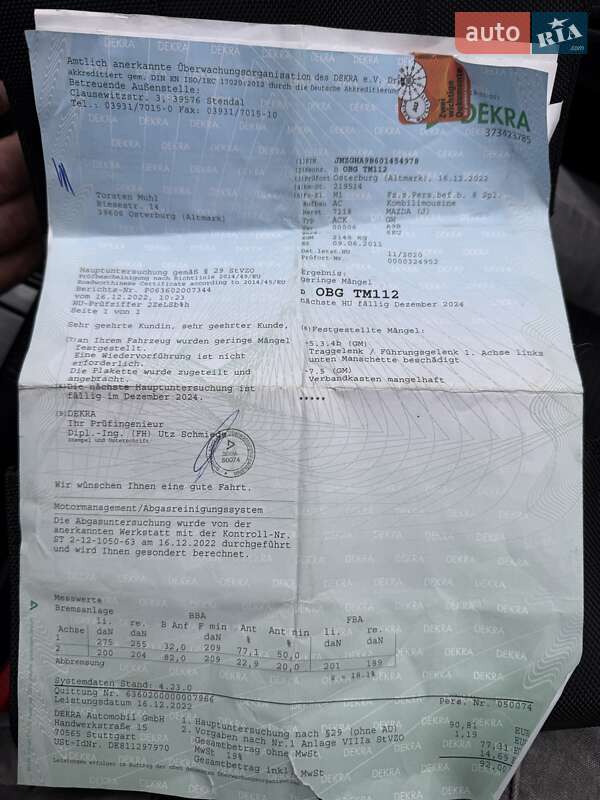 auto RIA.com
Amtlich anerkannte Überwachungsorganisation des DEKRA e.V. Dresden
akkreditiert gem. DIN EN ISO/IEC 17020:2012 durch die Deutsche Akkreditierungs
Betreuende Außenstelle:
Clausewitzstr. 3, 39576 Stendal
Tel.: 03931/7015-0 Fax: 03931/7015-10
Zwei wichtige Dokumente
DEKRA
373423785
Torsten Muhl
Biesestr. 14
39606 Osterburg (Altmark)
(1) FIN JMZGHA9B601454978
(2) Kennz. D OBG TM112
(3) Prüfort Osterburg (Altmark), 16.12.2022
(4) km-St. 219514
(5) Fz-Kl. M1 Fz.z.Pers.bef.b. 8 Spl.
Aufbau AC Kombilimousine
Herst 7118 MAZDA (J)
Typ ACK GH
Var 00006 A9B
6E2
zGM 2145 kg
EZ 09.06.2011
Dat.letzt.HU 11/2020
Prüfort-Nr. 0000324952
Hauptuntersuchung gemäß § 29 StVZO
Prüfbescheinigung nach Richtlinie 2014/45/EU
Roadworthiness Certificate according to 2014/45/EU
Berichts-Nr. P063602007344
vom 16.12.2022, 10:23
HU-Prüfziffer 2ZeLSb4h
Seite 1 von 1
Ergebnis:
geringe Mängel
D OBG TM112
nächste HU fällig Dezember 2024
Sehr geehrte Kundin, sehr geehrter Kunde,
(7) an Ihrem Fahrzeug wurden geringe Mängel
festgestellt.
Eine Wiedervorführung ist nicht
erforderlich.
Die Plakette wurde zugeteilt und
angebracht.
(8) Die nächste Hauptuntersuchung ist
fällig im Dezember 2024.
(6) Festgestellte Mängel:
-5.3.4b (GM)
Traggelenk / Führungsgelenk 1. Achse links
unten Manschette beschädigt
-7.5 (GM)
Verbandkasten mangelhaft
*****
(9) DEKRA
Ihr Prüfingenieur
Dipl.-Ing. (FH) Utz Schmiede
Stempel und Unterschrift
Wir wünschen Ihnen eine gute Fahrt.
Motormanagement/Abgasreinigungssystem
Die Abgasuntersuchung wurde von der
anerkannten Werkstatt mit der Kontroll-Nr.
ST 2-12-1050-63 am 16.12.2022 durchgeführt
und wird Ihnen gesondert berechnet.
Messwerte
Bremsanlage BBA FBA
li. re. B Anf F min Ant Ant min li. re.
Achse daN daN daN % % daN daN
1 275 255 32,0 209 77,1 50,0
2 200 204 62,0 209 22,9 20,0 201 189
Abbremsung z = 18.1%
Systemdaten Stand: 4.23.0
Quittung Nr. 6360200000007966 Pers. Nr. 050074
Leistungsdatum 16.12.2022
DEKRA Automobil GmbH 1. Hauptuntersuchung nach §29 (ohne AU) 90,81 EUR
Handwerkstraße 15 2. Vorgaben nach Nr.1 Anlage VIIIa StVZO 1,19 EUR
70565 Stuttgart Gesamtbetrag ohne MwSt 77,31 EUR
USt-IdNr. DE811297970 MwSt 19% 14,69
Gesamtbetrag inkl. MwSt 92,00